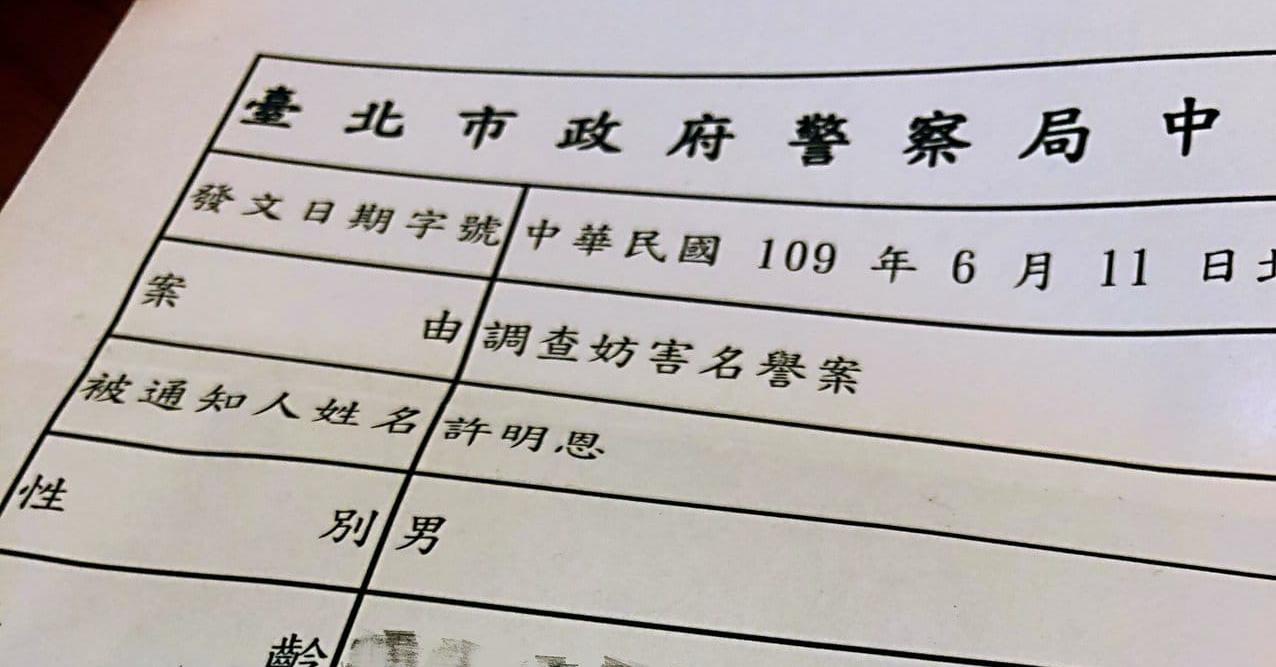 臺北市政府警察局中
發文日期字號 中華民國 109 年 6 月 11 日北
案由 調查妨害名譽案
被通知人姓名 許明恩
性別 男
齡